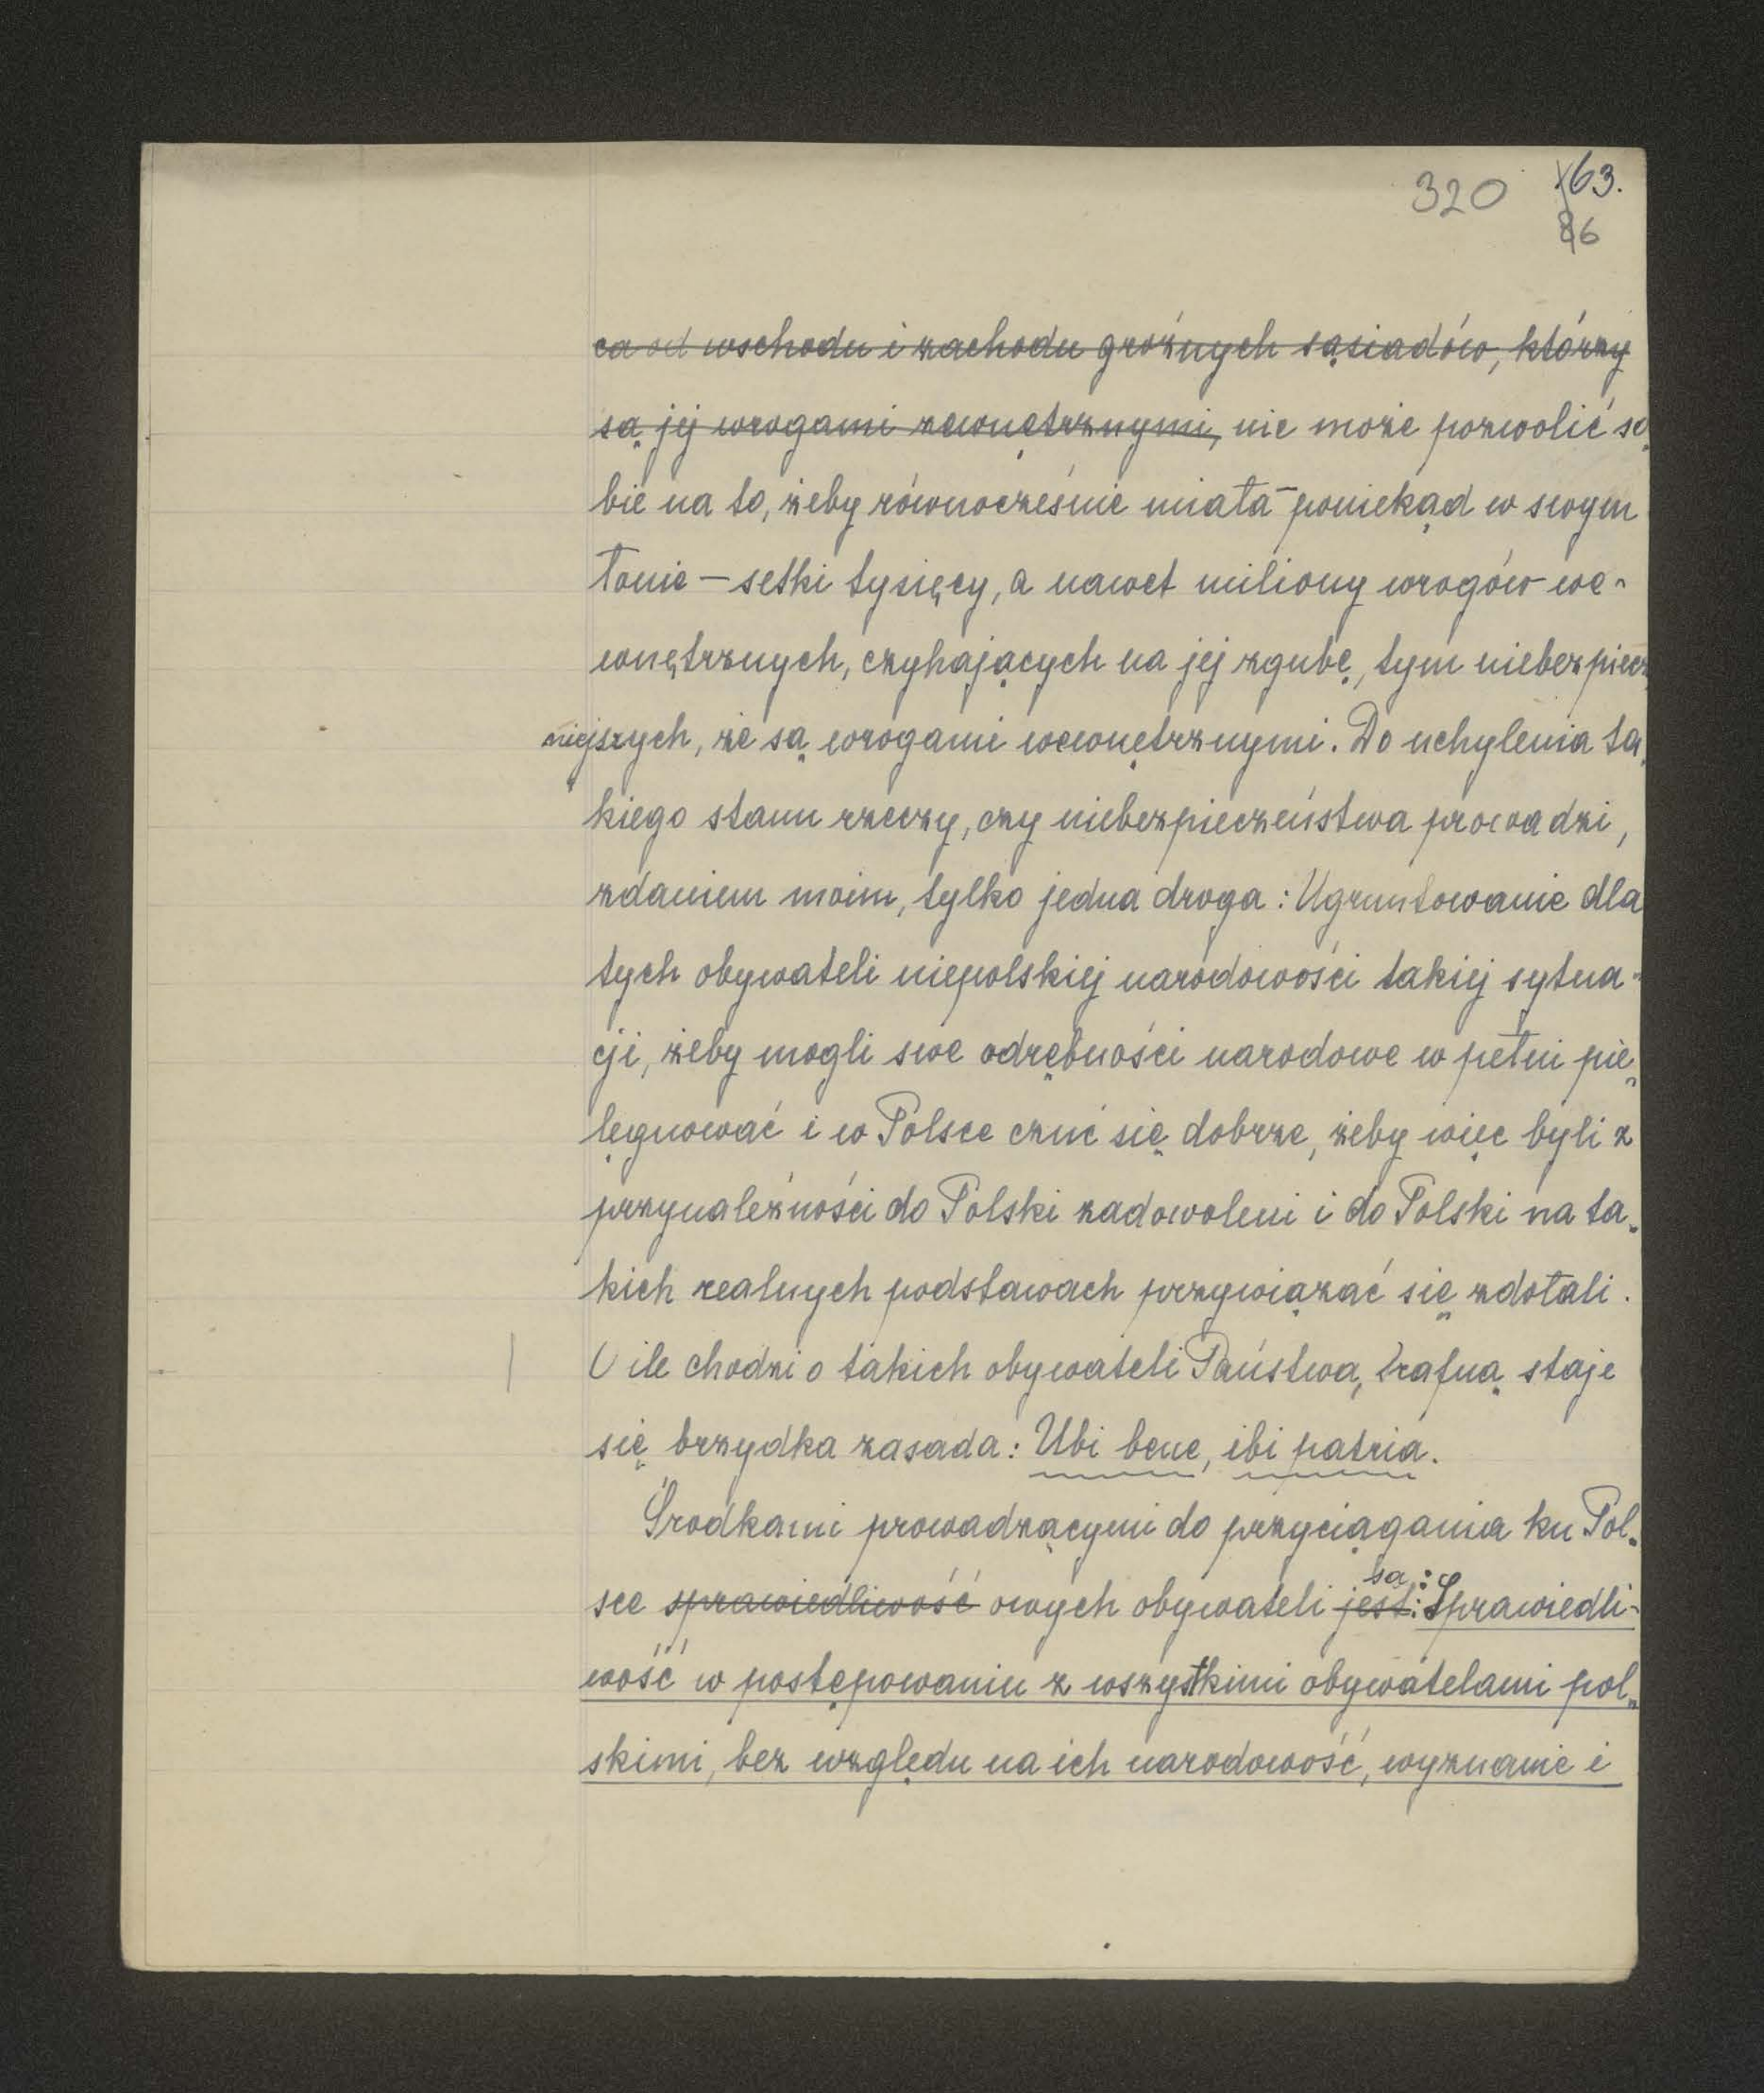 320 163.
86
ca od wschodu i zachodu groźnych sąsiadów, którzy
są jej wrogami zewnętrznymi, nie może pozwolić so-
bie na to, żeby równocześnie miała – poniekąd w swym
łonie – setki tysięcy, a nawet miliony wrogów we-
wnętrznych, czyhających na jej zgubę, tym niebezpiecz-
niejszych, że są wrogami wewnętrznymi. Do uchylenia ta-
kiego stanu rzeczy, czy niebezpieczeństwa prowadzi,
zdaniem moim, tylko jedna droga: Ugruntowanie dla
tych obywateli niepolskiej narodowości takiej sytua-
cji, żeby mogli swe odrębności narodowe w pełni pie-
lęgnować i w Polsce czuć się dobrze, żeby więc byli z
przynależności do Polski zadowoleni i do Polski na ta-
kich realnych podstawach przywiązać się zdołali.
O ile chodzi o takich obywateli Państwa, trafną staje
się brzydka zasada: Ubi bene, ibi patria.
Środkami prowadzącymi do przyciągania ku Pol-
są:
sce sprawiedliwość owych obywateli jest: Sprawiedli-
wość w postępowaniu z wszystkimi obywatelami pol-
skimi, bez względu na ich narodowość, wyznanie i